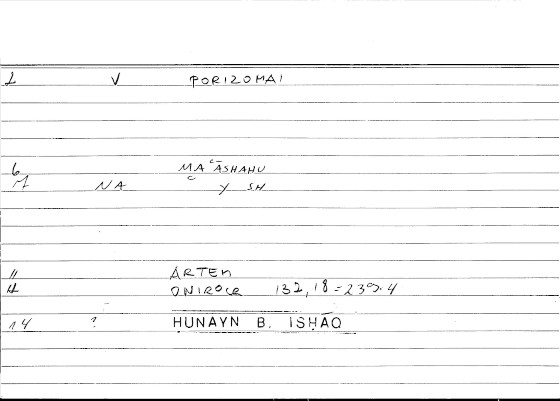 1 V PORIZOMAI
6 MAʿĀSHAHU
M NA ʿ Y SH
11 ARTEM
12 ONIROCR 132, 18 = 239.4
14 ? ḤUNAYN B. ISḤĀQ